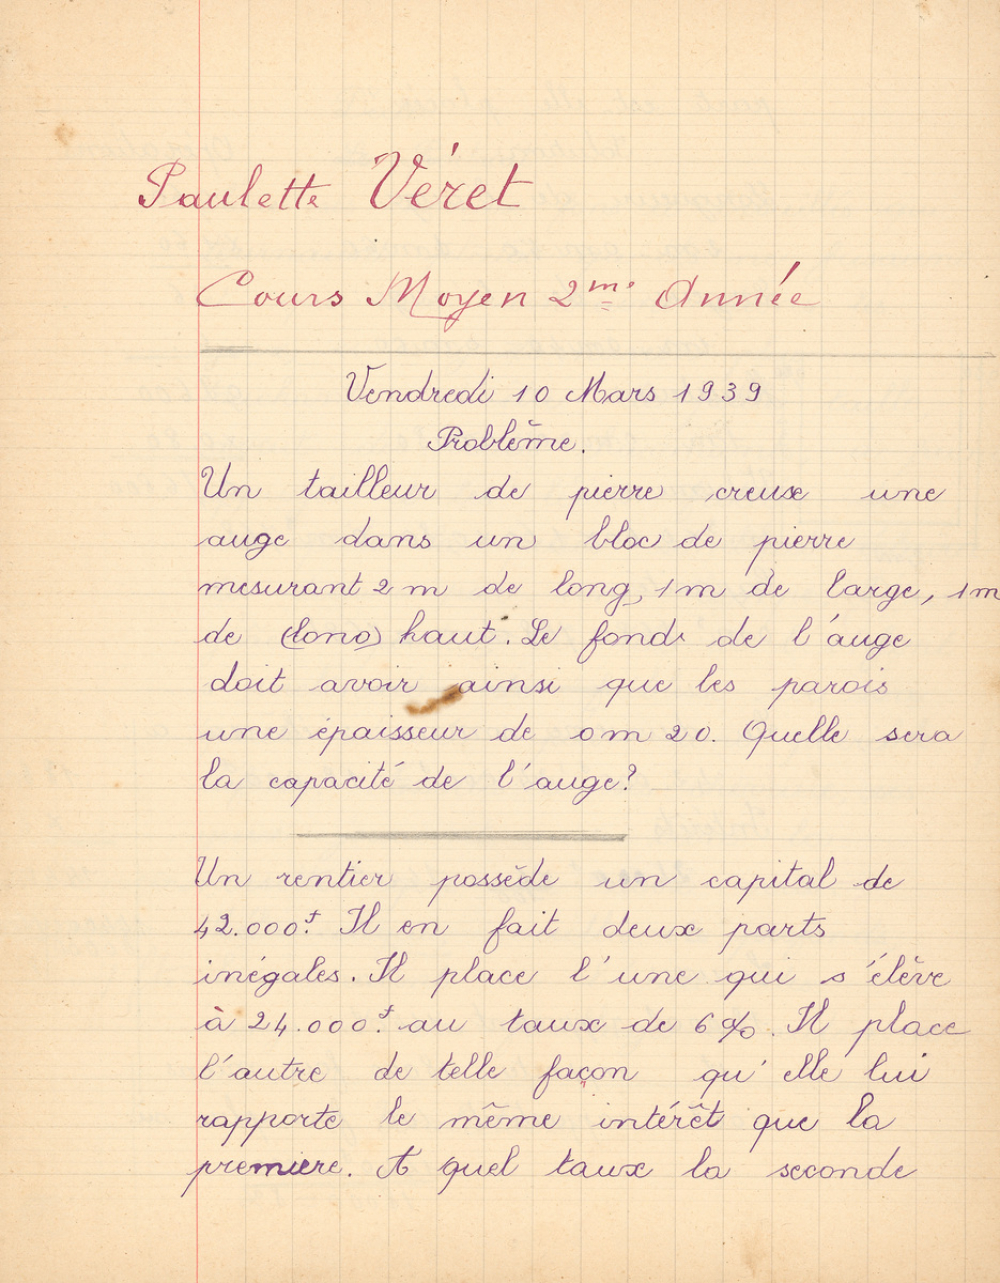 Paulette Véret
Cours Moyen 2me Année
Vendredi 10 Mars 1939
Problême.
Un tailleur de pierre creuse une
auge dans un bloc de pierre
mesurant 2 m de long, 1m de large, 1m
de (long) haut. Le fond de l'auge
doit avoir ainsi que les parois
une épaisseur de 0m20. Quelle sera
la capacité de l'auge?
Un rentier possède un capital de
42.000f. Il en fait deux parts
inégales. Il place l'une qui s'élève
à 24.000f. au taux de 6%. Il place
l'autre de telle façon qu'elle lui
rapporte le même intérêt que la
premiere. A quel taux la seconde